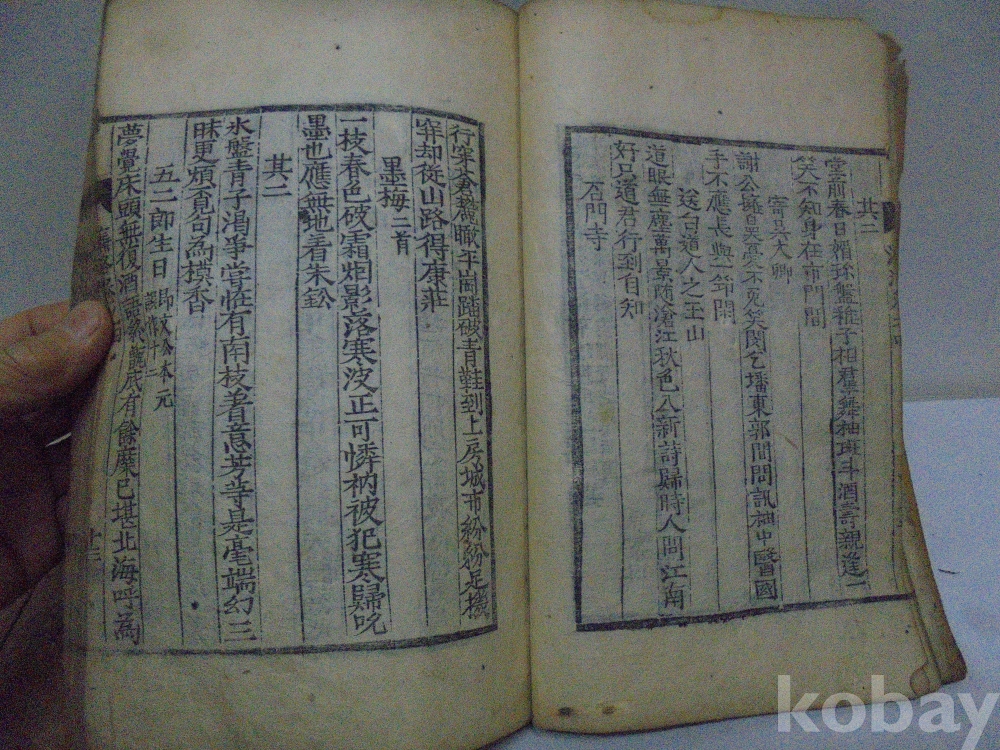 其二
堂前春日賴 盤稚子相羣舞袖斑斗酒壽親 一
笑不知身在市門間
寄吳大卿
謝公與 憂不見笑閔乞墦東郭間問訊袖中醫國
手不應長與一節閑
送白道人之玉山
道眼無塵萬景随滄江秋色入新詩歸時人問江南
好只道君行到自知
石門寺
行穿 瞰平崗踏破青鞋到上房城市紛紛足機
穽却從山路得康莊
墨梅二首
一枝春色破霜烟影落寒波正可憐衲被犯寒歸吮
墨也應無地着朱鈆
其二
氷盤青子渴爭嘗恠有南枝着意芳等是毫端幻三
昧更煩覔句為摸香
五二郎生日
夢 床頭無復酒 有餘糜已堪北海呼為
kobay